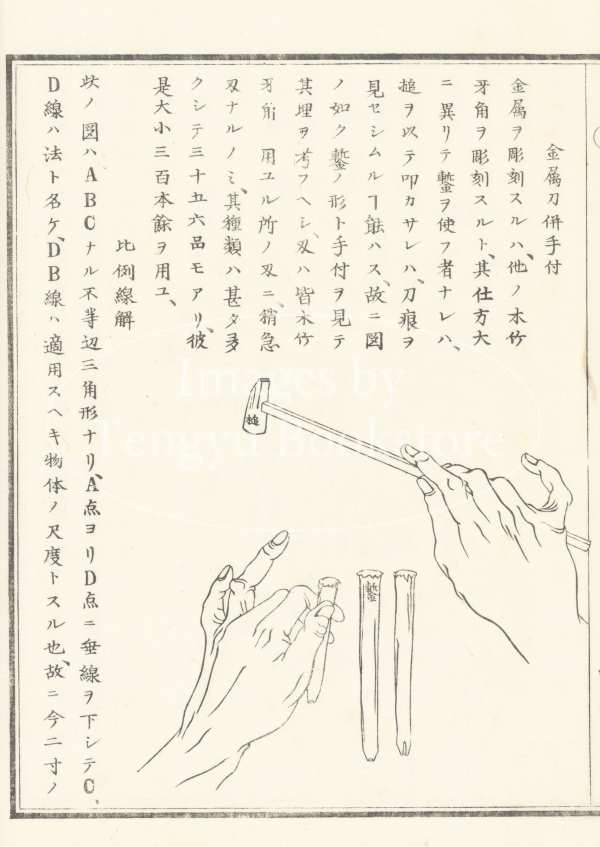 金属刀併手付
金属ヲ彫刻スルハ、他ノ木竹
牙角ヲ彫刻スルト、其仕方大
ニ異リテ鏨ヲ使フ者ナレハ、
槌ヲ以テ叩カサレハ、刀痕ヲ
見セシムルヿ能ハス、故ニ図
ノ如ク鏨ノ形ト手付ヲ見テ
其理ヲ考フヘシ、刄ハ皆木竹
牙角 用ユル所ノ刄ニ、稍急
刄ナルノミ、其種類ハ甚タ多
クシテ三十五六品モアリ、彼
是大小三百本餘ヲ用ユ、
比例線解
此ノ図ハABCナル不等辺三角形ナリ、A点ヨリD点ニ垂線ヲ下シテC、
D線ハ法ト名ケ、DB線ハ適用スヘキ物体ノ尺度トスル也、故ニ今二寸ノ
槌
鏨
Images by
Tengyu Bookstore